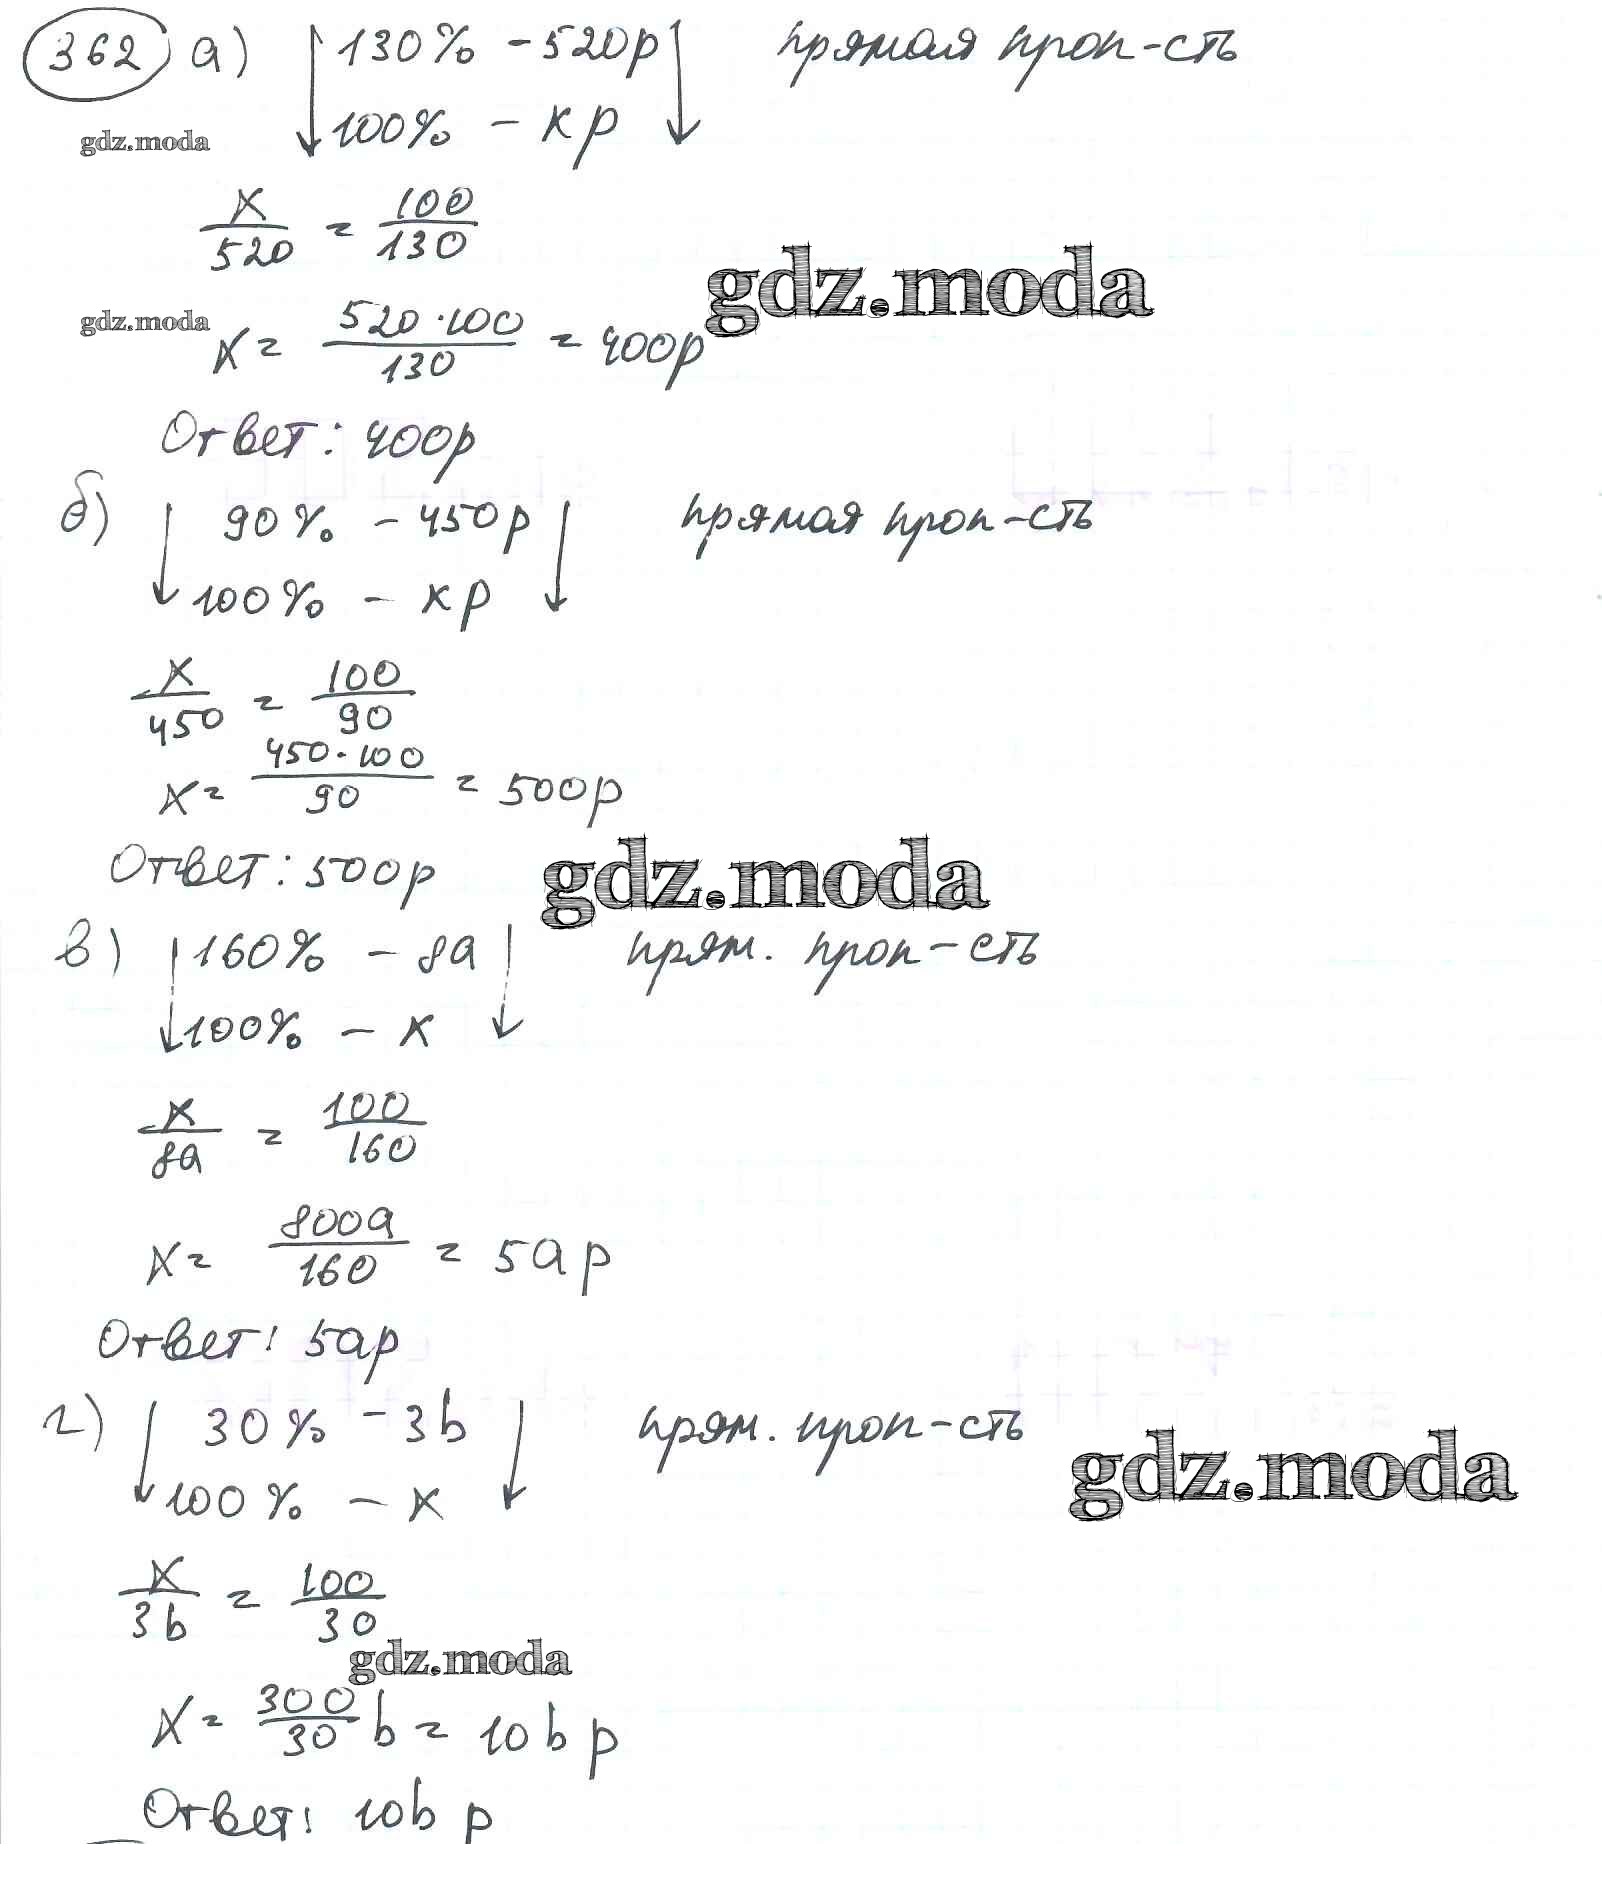 362 а) 130% - 520р прямая проп-сть
gdz.moda 100% - xр
x/520 = 100/130
gdz.moda
gdz.moda x = 520·100/130 = 400р
Ответ: 400р
б) 90% - 450р прямая проп-сть
100% - xр
x/450 = 100/90
x = 450·100/90 = 500р
Ответ: 500р gdz.moda
в) 160% - 8a прям. проп-сть
100% - x
x/8a = 100/160
x = 800a/160 = 5a р
Ответ: 5aр
г) 30% - 3b прям. проп-сть
gdz.moda
100% - x
x/3b = 100/30
gdz.moda
x = 300/30 b = 10b р
Ответ: 10b р